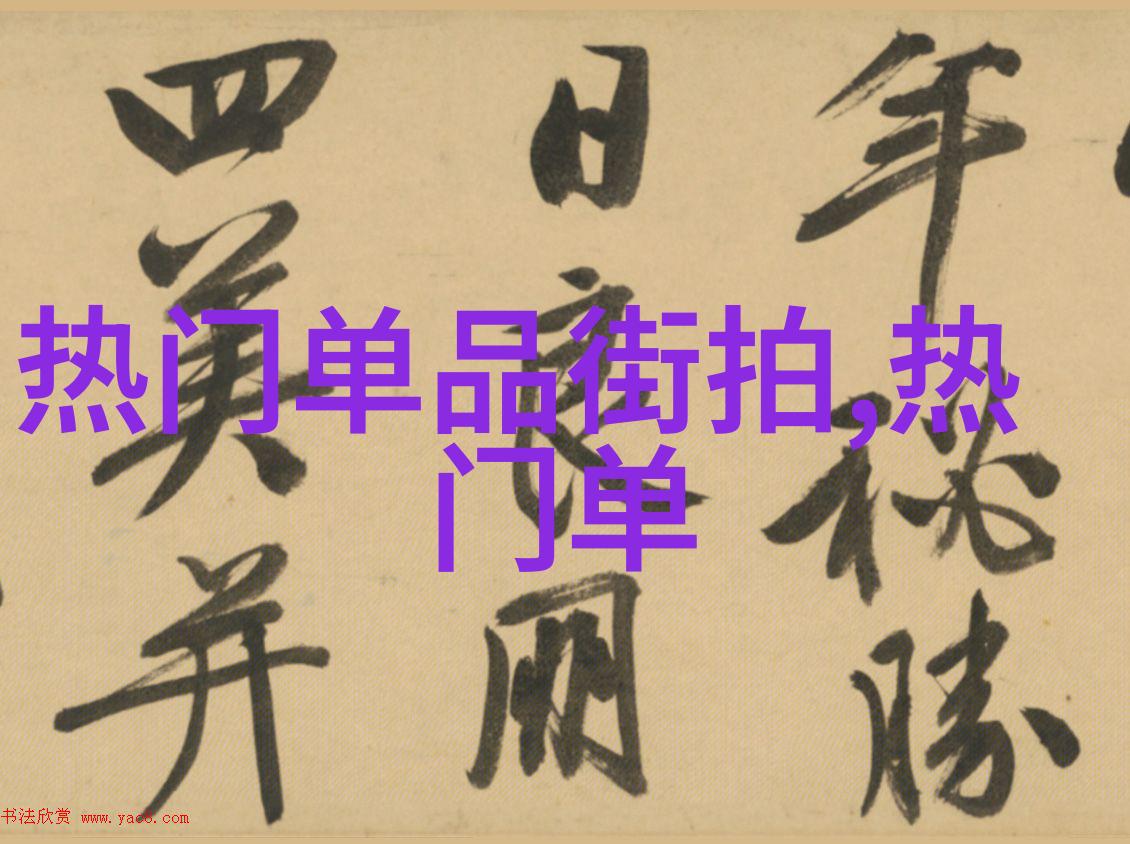 热门单品街拍,热
门单
年祕勝
日良
四美并
书法欣赏 www.yac8.com